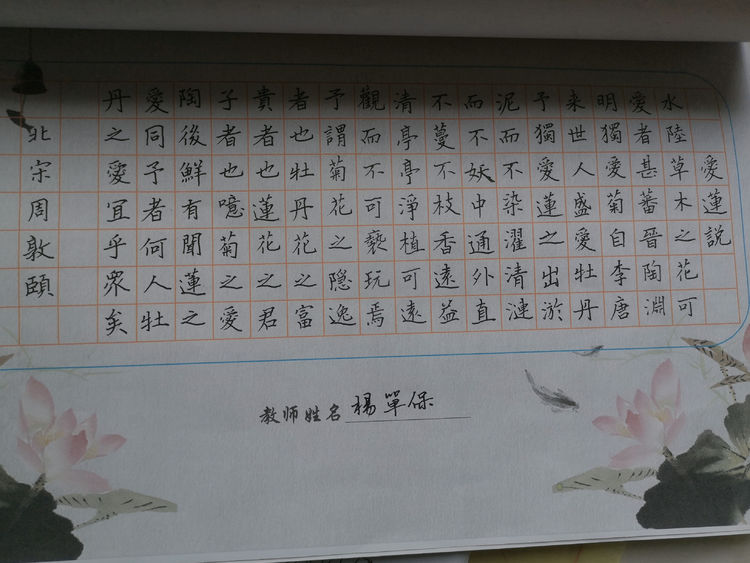 愛蓮說
水陸草木之花可
愛者甚蕃晉陶淵
明獨愛菊自李唐
来世人盛愛牡丹
予獨愛蓮之出淤
泥而不染濯清漣
而不妖中通外直
不蔓不枝香遠益
清亭亭淨植可遠
觀而不可褻玩焉
予謂菊花之隐逸
者也牡丹花之富
貴者也蓮花之君
子者也噫菊之愛
陶後鮮有聞蓮之
愛同予者何人牡
丹之愛宜乎眾矣
北宋周敦頤
教师姓名 楊單保